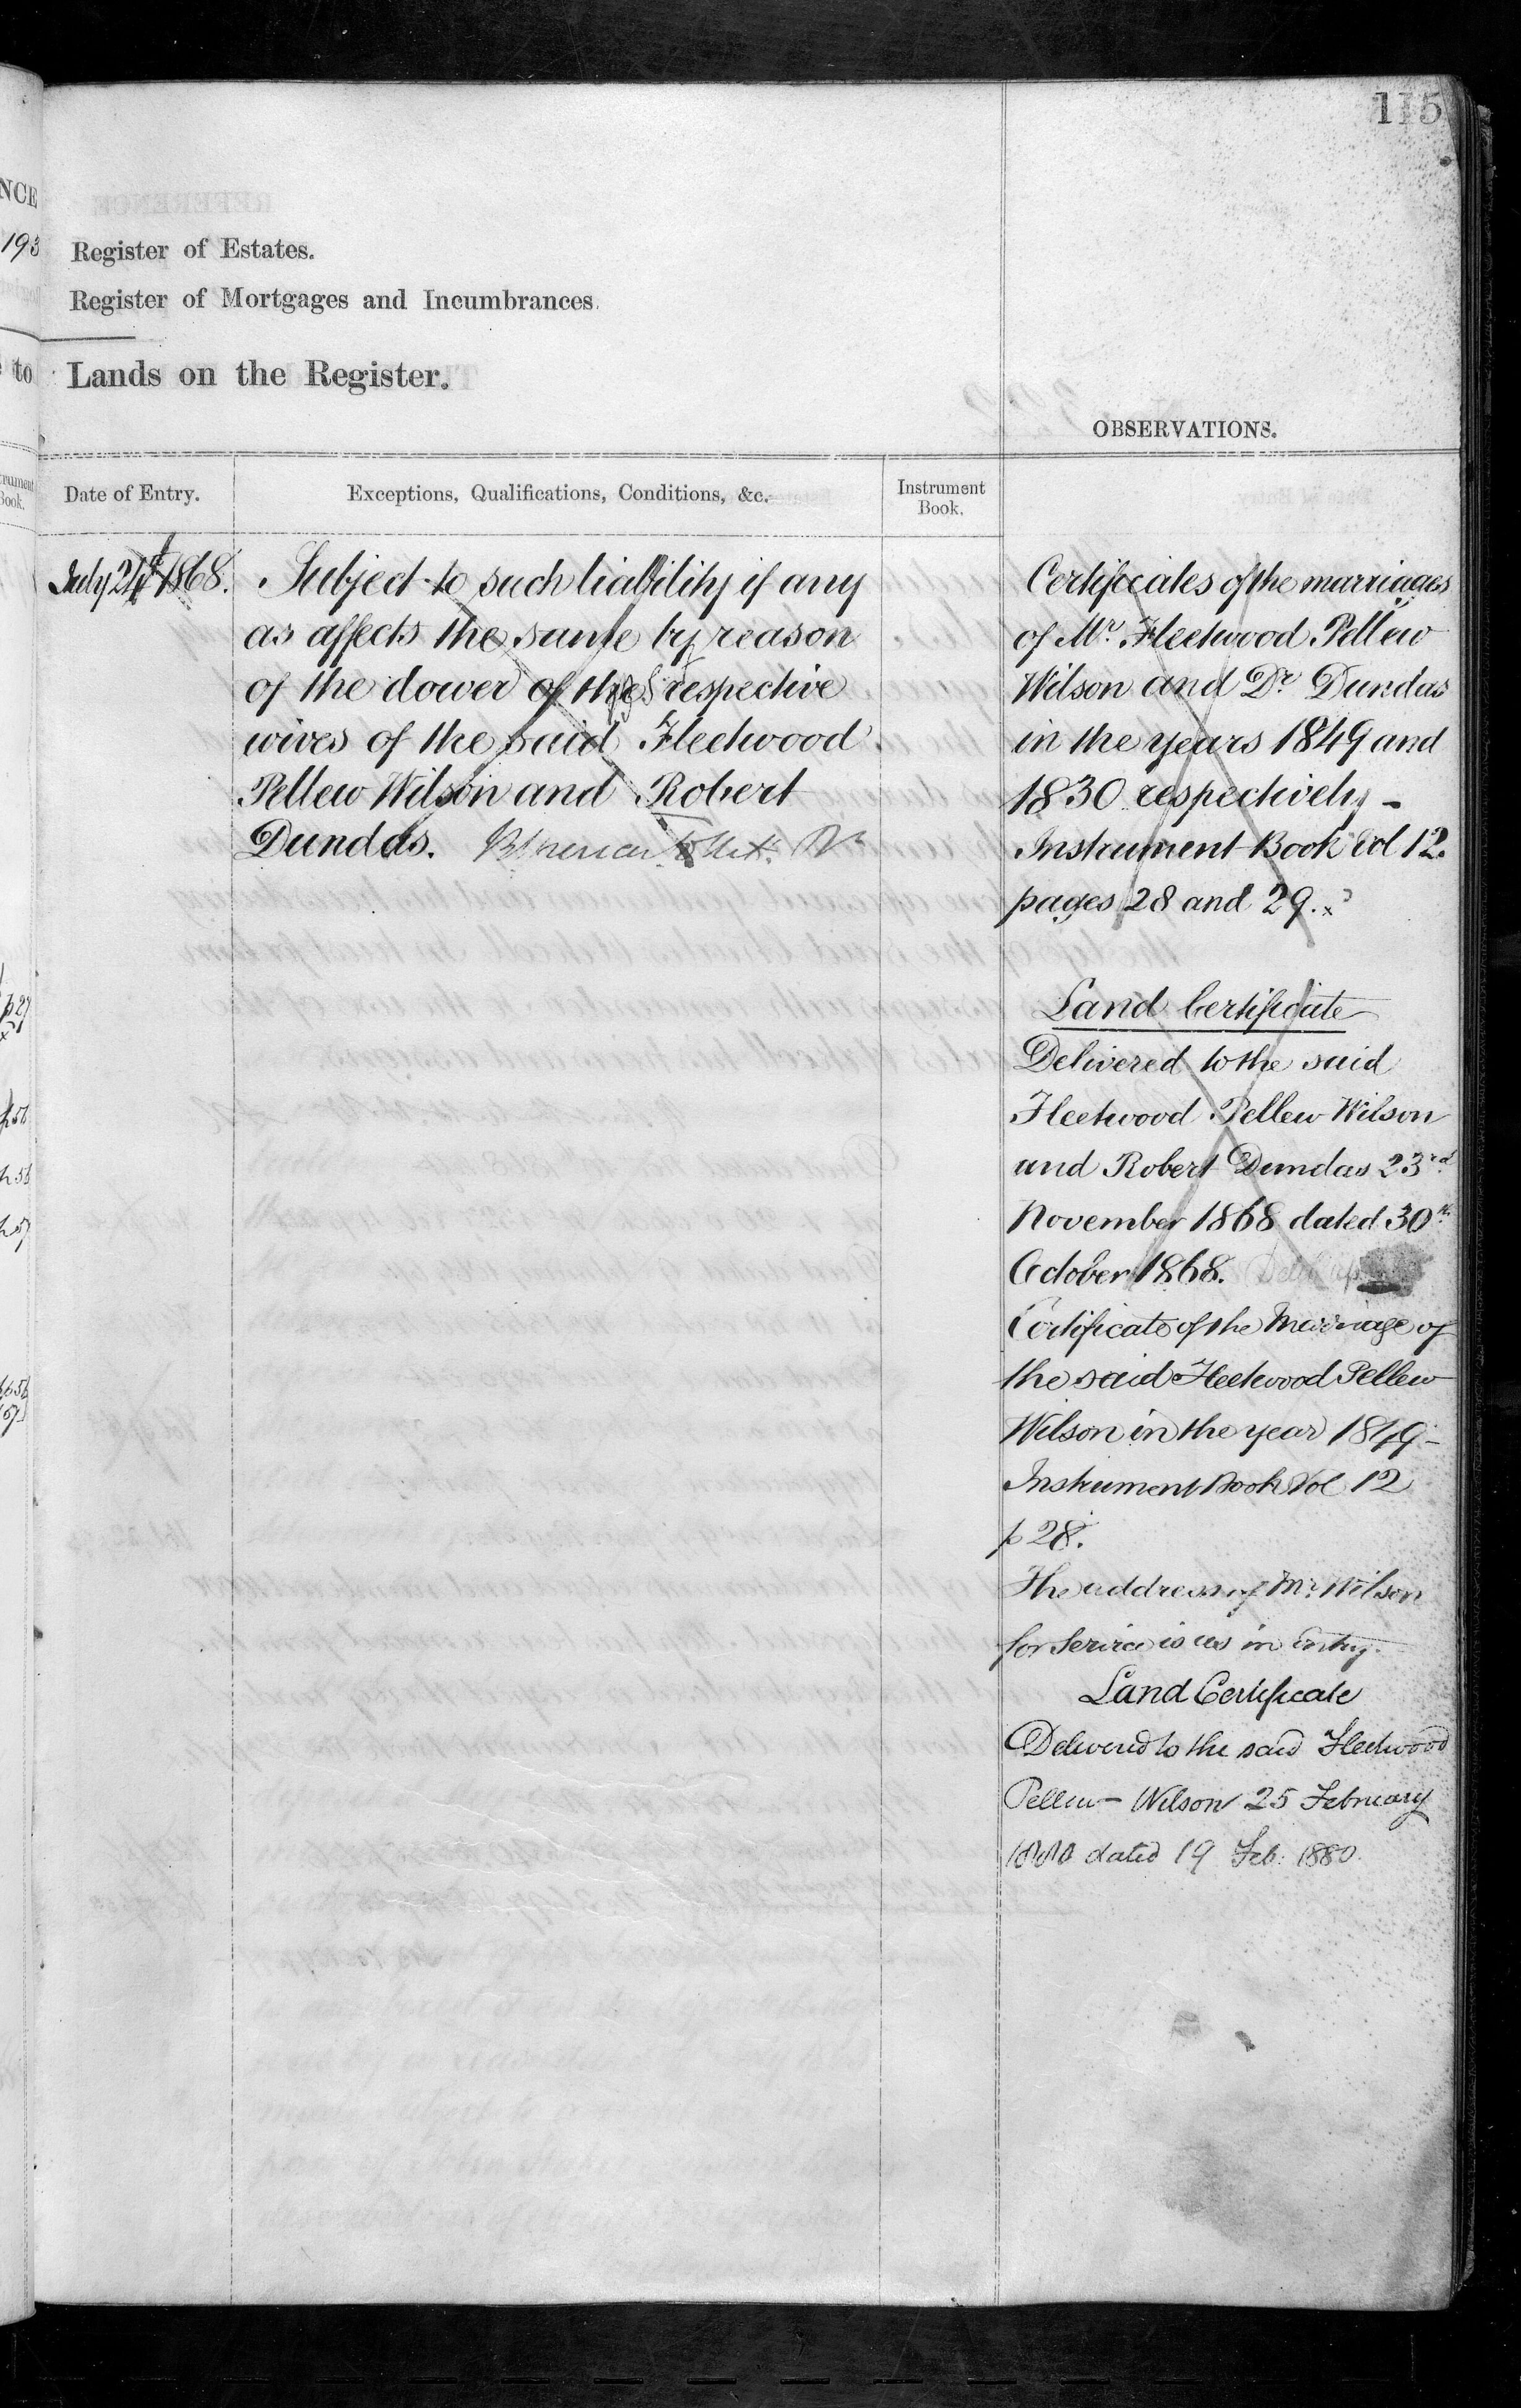 115
Register of Estates.
Register of Mortgages and Incumbrances.
Lands on the Register.
OBSERVATIONS.
Date of Entry.
Exceptions, Qualifications, Conditions, &c.
Instrument
Book.
July 21st 1868.
Subject to such liability if any
as affects the same by reason
of the dower of the respective
wives of the said Fleetwood
Pellew Wilson and Robert
Dundas.
Certificates of the marriages
of Mr. Fleetwood Pellew
Wilson and Dr Dundas
in the years 1849 and
1830 respectively -
Instrument Book Vol 12.
pages 28 and 29.
Land Certificate
Delivered to the said
Fleetwood Pellew Wilson
and Robert Dundas 23rd
November 1868 dated 30th
October 1868.
Certificate of the Marriage of
the said Fleetwood Pellew
Wilson in the year 1849 -
Instrument Book Vol 12
p 28.
The address of Mr. Wilson
for Service is as in Entry.
Land Certificate
Delivered to the said Fleetwood
Pellew Wilson 25 February
1880 dated 19 Feb: 1880.
NCE
193
to
p 27
p 56